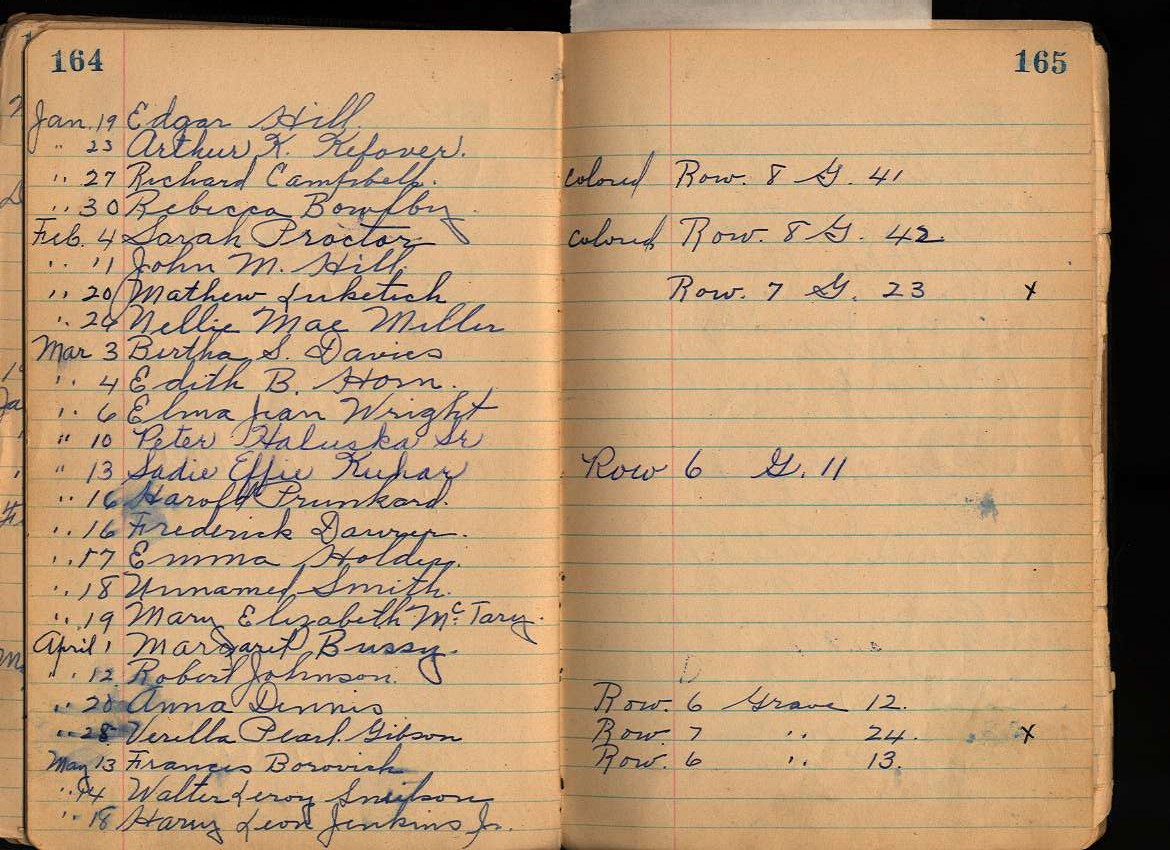 164
165
Jan. 19 Edgar Hill
" 23 Arthur K. Kefover.
" 27 Richard Campbell. colored Row. 8 G. 41
" 30 Rebecca Bowlby.
Feb. 4 Sarah Proctor colored Row. 8 G. 42
" 11 John M. Hill.
" 20 Mathew Luketich Row. 7 G. 23 x
" Nellie Mae Miller
Mar 3 Bertha S. Davies
" 4 Edith B. Horn.
" 6 Elma Jean Wright
" 10 Peter Haluska Sr
" 13 Sadie Effie Kuhar Row 6 G. 11
" 16 Harold Prunkard.
" 16 Frederick
" 17 Emma
" 18 Unnamed Smith.
" 19 Mary Elizabeth McTary.
April 1 Margaret Bussy.
" 12 Robert Johnson.
" 20 Anna Dennis Row. 6 Grave 12.
" 28 Verilla Pearl Gibson Row. 7 " 24. x
May 13 Frances Borovich Row. 6 " 13.
" 14 Walter Leroy
" 18 Harry Leon Jenkins Jr.